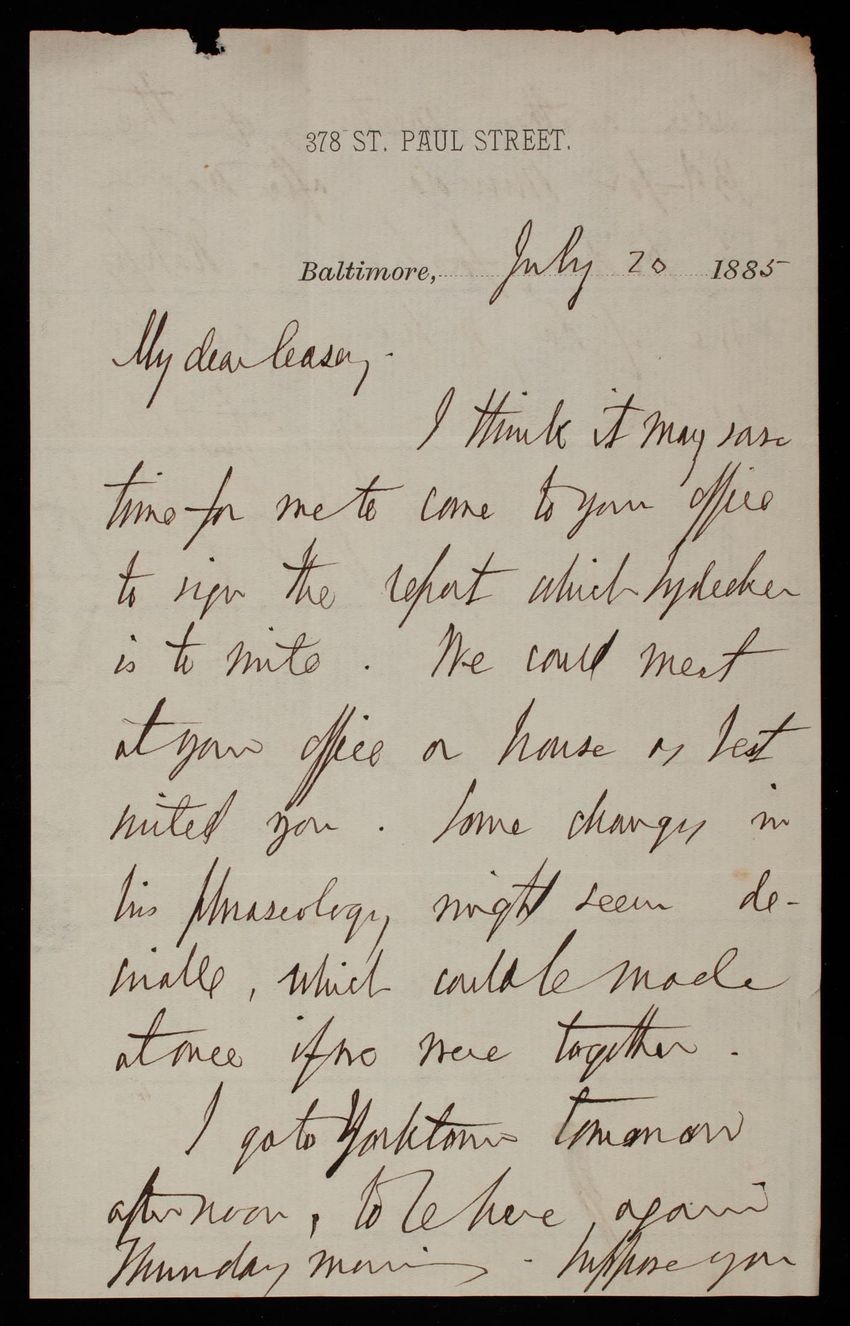 378 ST. PAUL STREET.
Baltimore, July 20 1885
My dear Casey.
I think it may save
time for me to come to your office
to sign the report which Lydecker
is to write. We could meet
at your office or house as best
suited you. Some changes in
his phraseology might seem de-
sirable, which could be made
at once if we were together.
I go to Yorktown tomorrow
afternoon, to be here again
Thursday morning. Suppose you